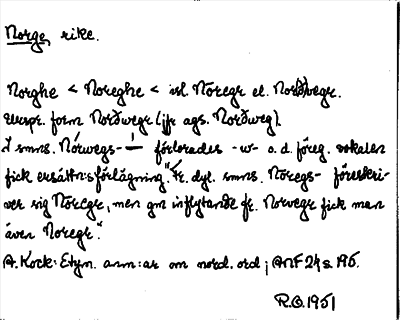 Norge, rike.
Norghe < Noreghe < isl. Nóregr el. Norðvegr.
Urspr. form Norðwegr (jfr ags. Norðweg).
I smns. Nórwegs- förlorades -w- o. d. föreg. vokalen
fick ersättn:sförlägning. "Fr. dyl. smns. Nōregs- förskri-
ver sig Nōregr, men gm inflytande fr. Norvegr fick man
även Noregr."
A. Kock: Etym. anm:ar om nord. ord; ANF 24 s. 195.
R.O. 1951